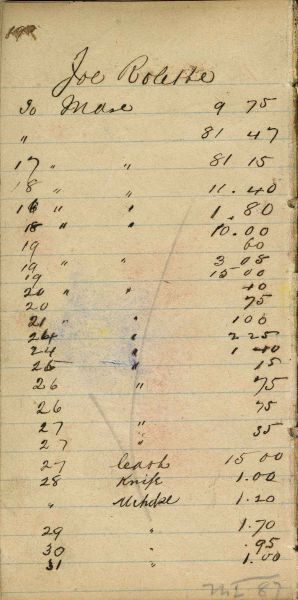 Joe Rolette
To Mdse 9 75
" 81 47
17 " " 81 15
18 " " 11.40
16 " " 1.80
18 " " 10.00
19 60
19 " " 3 05
19 15 00
20 " " 40
20 75
21 " " 100
24 " 2 25
24 " 1 40
25 " 15
26 " 75
26 75
27 " 35
27 "
27 Cash 15 00
28 Knife 1.00
" Mdse 1.20
29 " 1.70
30 " .95
31 " 1.00